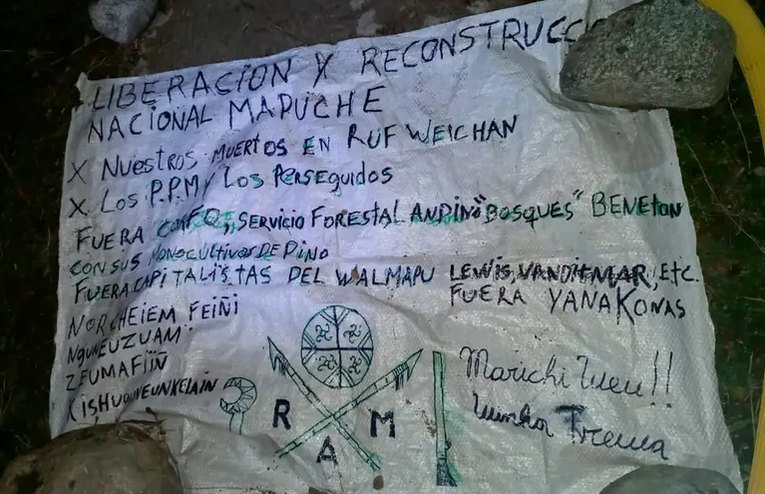 LIBERACION X RECONSTRUCC
NACIONAL MAPUCHE
X NUESTROS MUERTOS EN RUF WEICHAN
X LOS P.P.M Y LOS PERSEGUIDOS
FUERA SERVICIO FORESTAL ANDINO "BOSQUES" BENETON
CON SUS MONOCULTIVOS DE PINO
FUERA CAPITALISTAS DEL WALMAPU LEWIS, VANDITMAR, ETC.
FUERA YANAKONAS
NORCHEIEM FEIÑI
NGUNEUZUAM
ZEUMAFIIÑ
KISHUGUNEUNKELAIN
R A M
Marichi Weu!!
Lumko Trewa